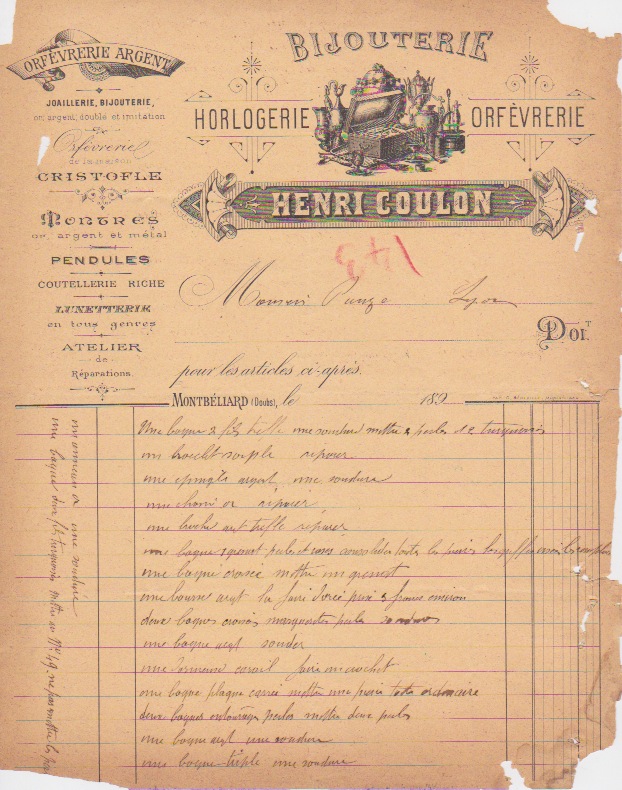 ORFÈVRERIE ARGENT
JOAILLERIE, BIJOUTERIE,
or, argent, doublé et imitation
Orfèvrerie
de la maison
CRISTOFLE
MONTRES
or, argent et métal
PENDULES
COUTELLERIE RICHE
LUNETTERIE
en tous genres
ATELIER
de
Réparations.
BIJOUTERIE
HORLOGERIE ORFÈVRERIE
HENRI COULON
143
Monsieur Lyon
DOIT
pour les articles ci-après.
MONTBÉLIARD (Doubs), le 189
Une bague 2 fils une soudure mettre 2 perles et 2 turquoises
un souple réparer
une epingle argent une soudure
une réparer
une broche argt trefle réparer
bague perles et roses consolider toutes les
une bague croisée mettre un grenat
une bourse argt la faire 3 francs environ
deux bagues marguerites perles
une bague argt souder
une corail faire un crochet
une bague plaque carrée mettre une ordinaire
deux bagues entourages perles mettre deux perles
une bague argt une soudure
une bague triple une soudure
un anneau or une soudure
une bague deux fils turquoises mettre au No 49 ne pas mettre les